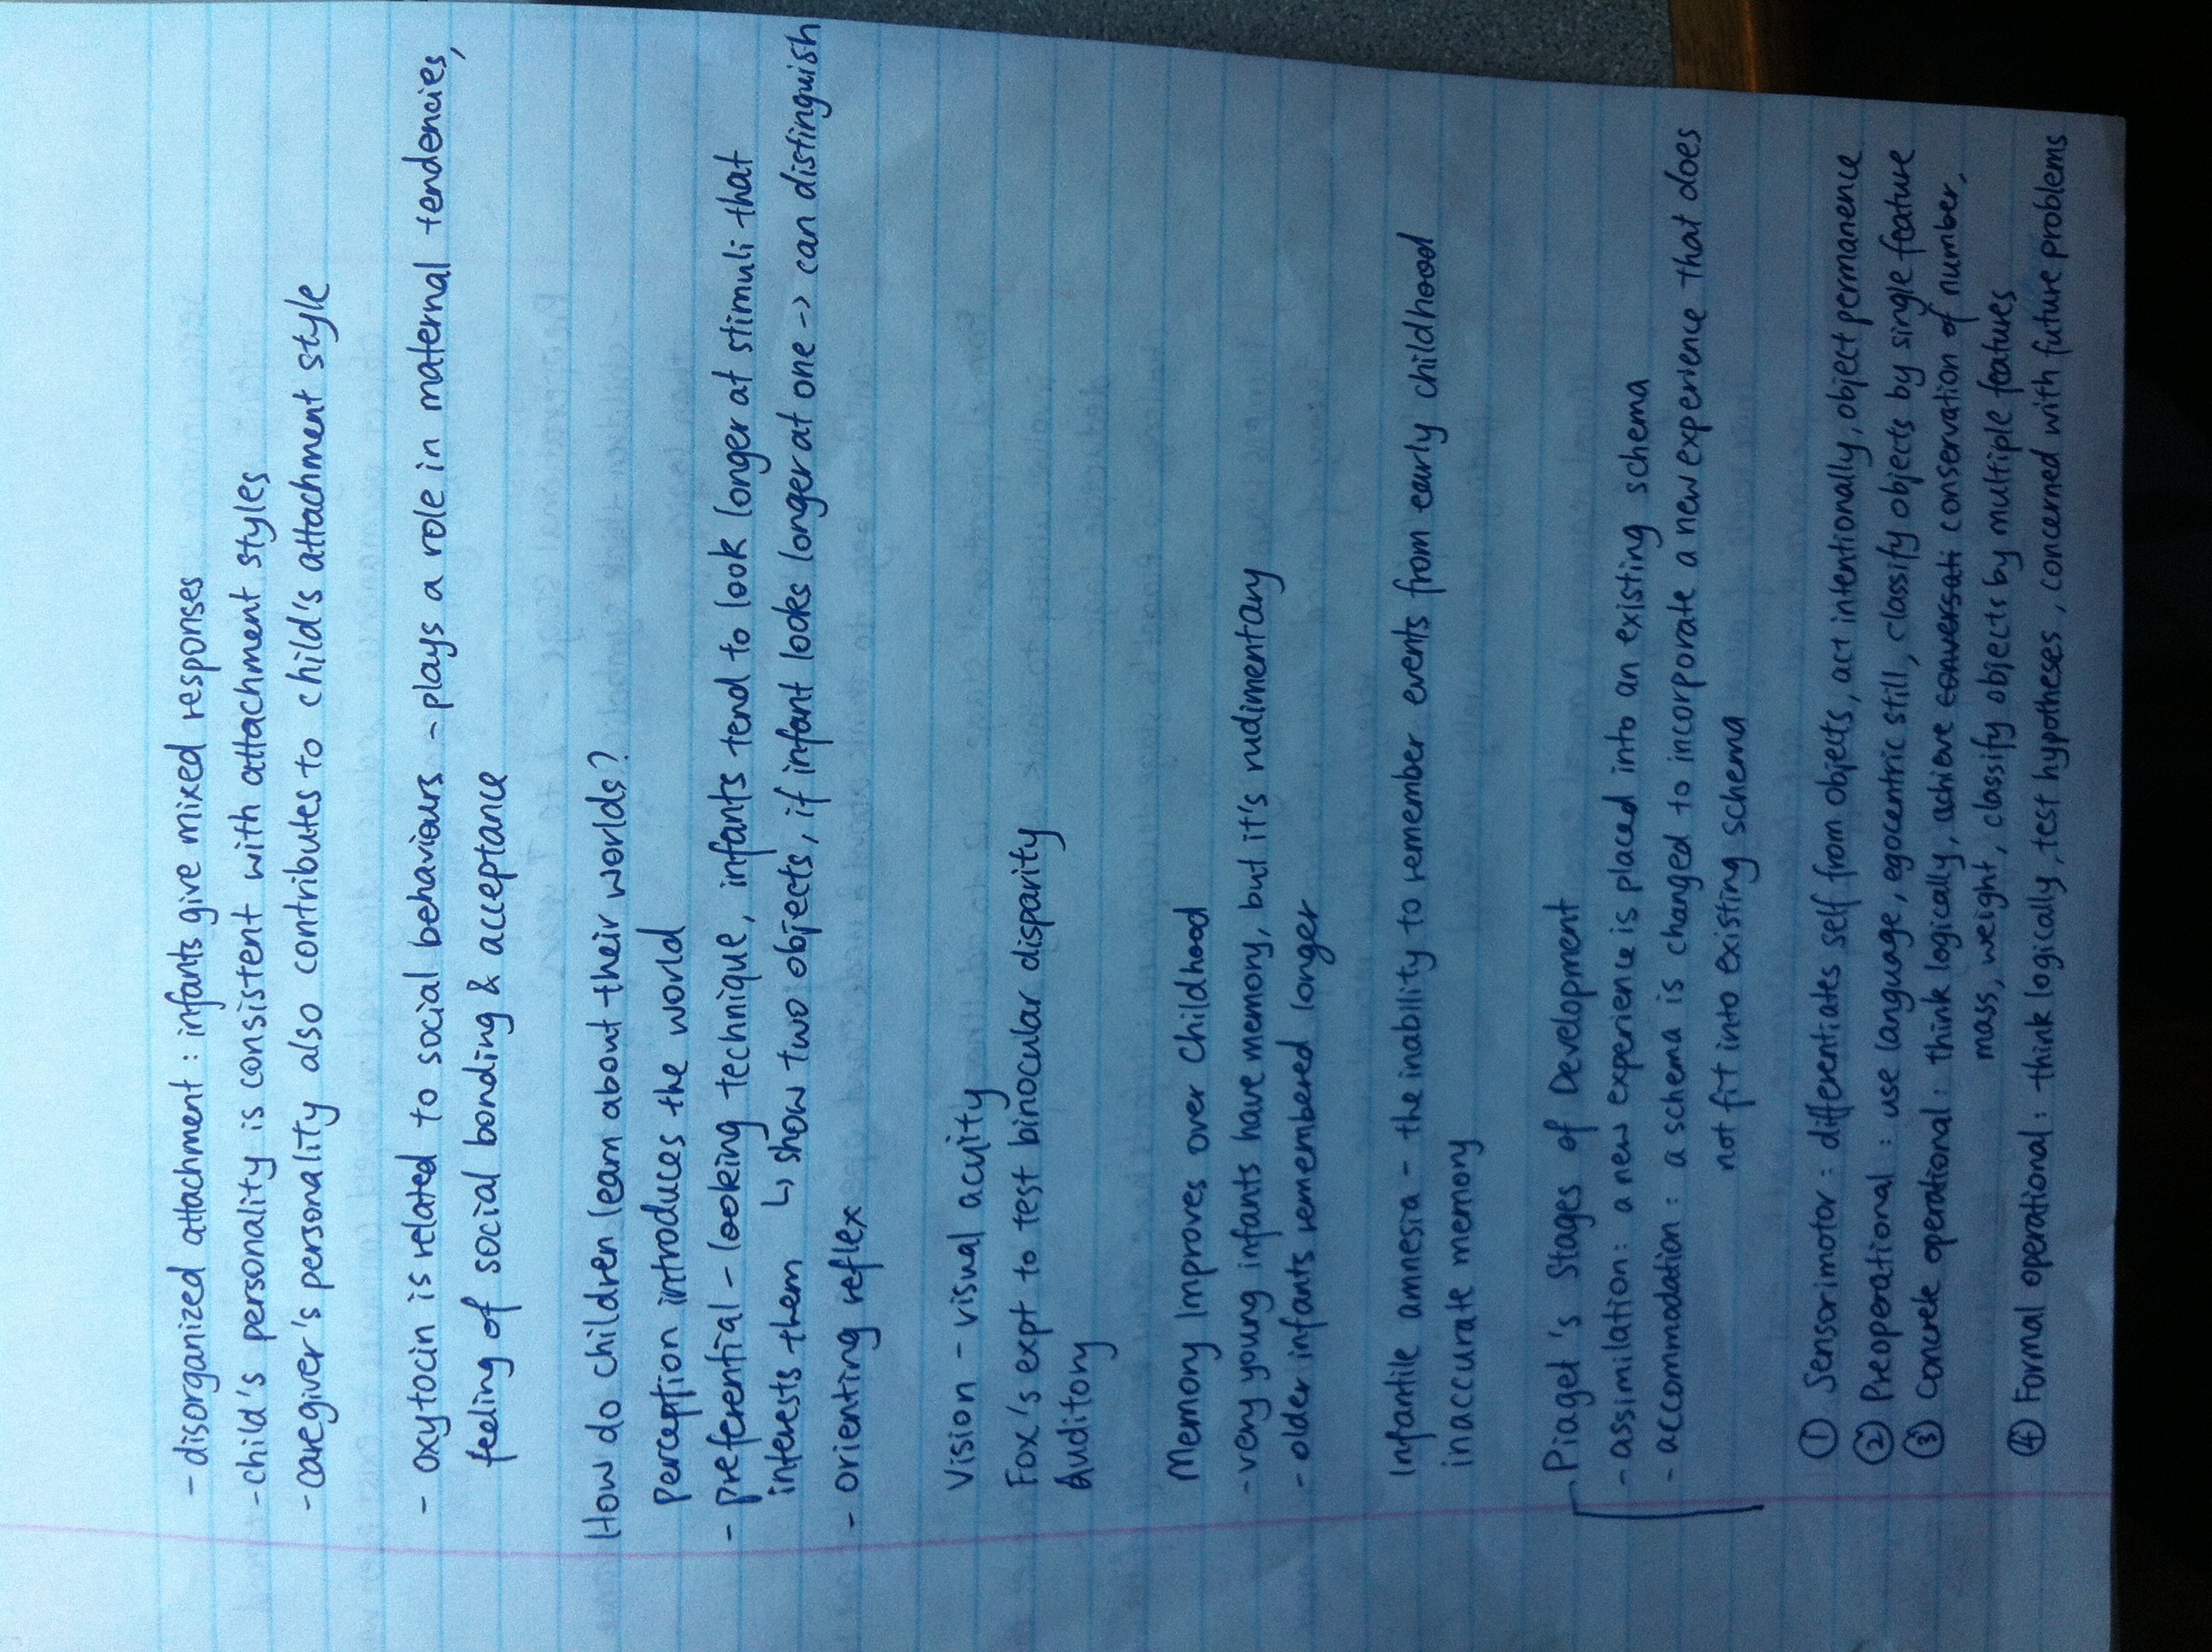 - disorganized attachment : infants give mixed responses
- child's personality is consistent with attachment styles
- caregiver's personality also contributes to child's attachment style
- oxytocin is related to social behaviours - plays a role in maternal tendencies,
feeling of social bonding & acceptance
How do children learn about their worlds?
perception introduces the world
- preferential - looking technique, infants tend to look longer at stimuli that
interests them ↳ show two objects, if infant looks longer at one -> can distinguish
- orienting reflex
Vision - visual acuity
Fox's expt to test binocular disparity
Auditory
Memory Improves over Childhood
- very young infants have memory, but it's rudimentary
- older infants remembered longer
Infantile amnesia - the inability to remember events from early childhood
inaccurate memory
Piaget's Stages of Development
- assimilation: a new experience is placed into an existing schema
- accommodation : a schema is changed to incorporate a new experience that does
not fit into existing schema
① Sensorimotor : differentiates self from objects, act intentionally, object permanence
② Preoperational : use language, egocentric still, classify objects by single feature
③ Concrete operational : think logically, achieve conversati conservation of number,
mass, weight, classify objects by multiple features
④ Formal operational : think logically, test hypotheses, concerned with future problems